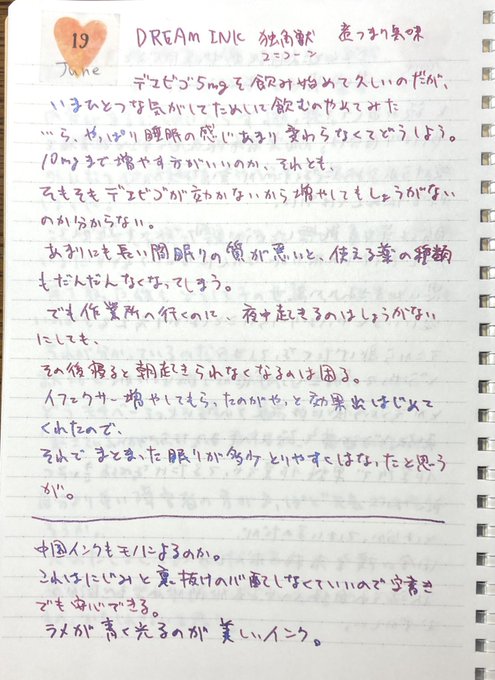 19
June
DREAM INK 独角獣 煮つまり気味
ユニコーン
デエビゴ5mgを飲み始めて久しいのだが、
いまひとつな気がしてためしに飲むのやめてみた
…ら、やっぱり睡眠の感じあまり変わらなくてどうしよう。
10mgまで増やす方がいいのか、それとも、
そもそもデエビゴが効かないから増やしてもしょうがない
のか分からない。
あまりにも長い間眠りの質が悪いと、使える薬の種類
もだんだんなくなってしまう。
でも作業所へ行くのに、夜中起きるのはしょうがない
にしても、
その後寝ると朝起きられなくなるのは困る。
イフェクサー増やしてもらったのがやっと効果出はじめて
くれたので、
それでまとまった眠りが多少とりやすくはなったと思う
が。
中国インクもモノによるのか。
これはにじみと裏抜けの心配しなくていいので字書き
でも安心できる。
ラメが青く光るのが美しいインク。